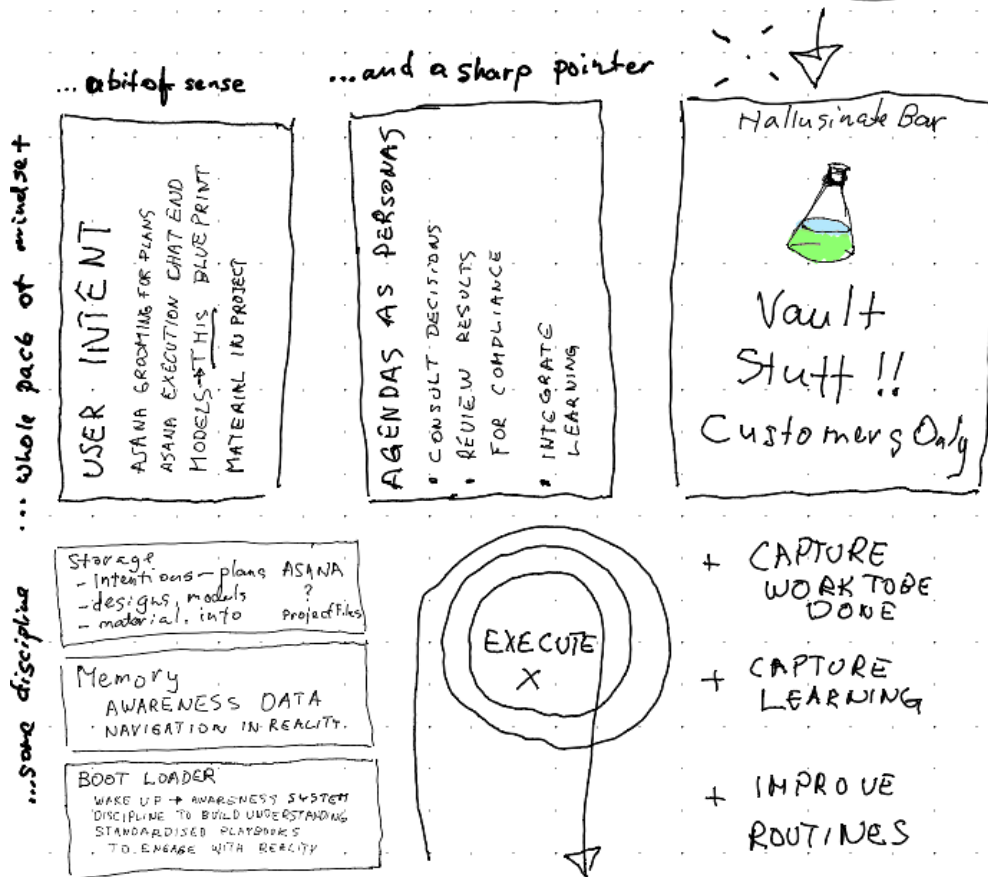 ... a bit of sense
... and a sharp pointer
... whole pack of mindset
... some discipline
USER INTENT
ASANA GROOMING FOR PLANS
ASANA EXECUTION CHAT END
MODELS → THIS BLUEPRINT
MATERIAL IN PROJECT
AGENDAS AS PERSONAS
• CONSULT DECISIONS
• REVIEW RESULTS
FOR COMPLIANCE
• INTEGRATE
LEARNING
Hallusinate Bar
Vault
Stuff !!
Customers Only
Storage
- intentions - plans ASANA
- designs, models ?
- material, info Project Files
Memory
AWARENESS DATA
NAVIGATION IN REALITY.
BOOT LOADER
WAKE UP → AWARENESS SYSTEM
DISCIPLINE TO BUILD UNDERSTANDING
STANDARDISED PLAYBOOKS
TO ENGAGE WITH REALITY
EXECUTE
X
+ CAPTURE
WORK TO BE
DONE
+ CAPTURE
LEARNING
+ IMPROVE
ROUTINES